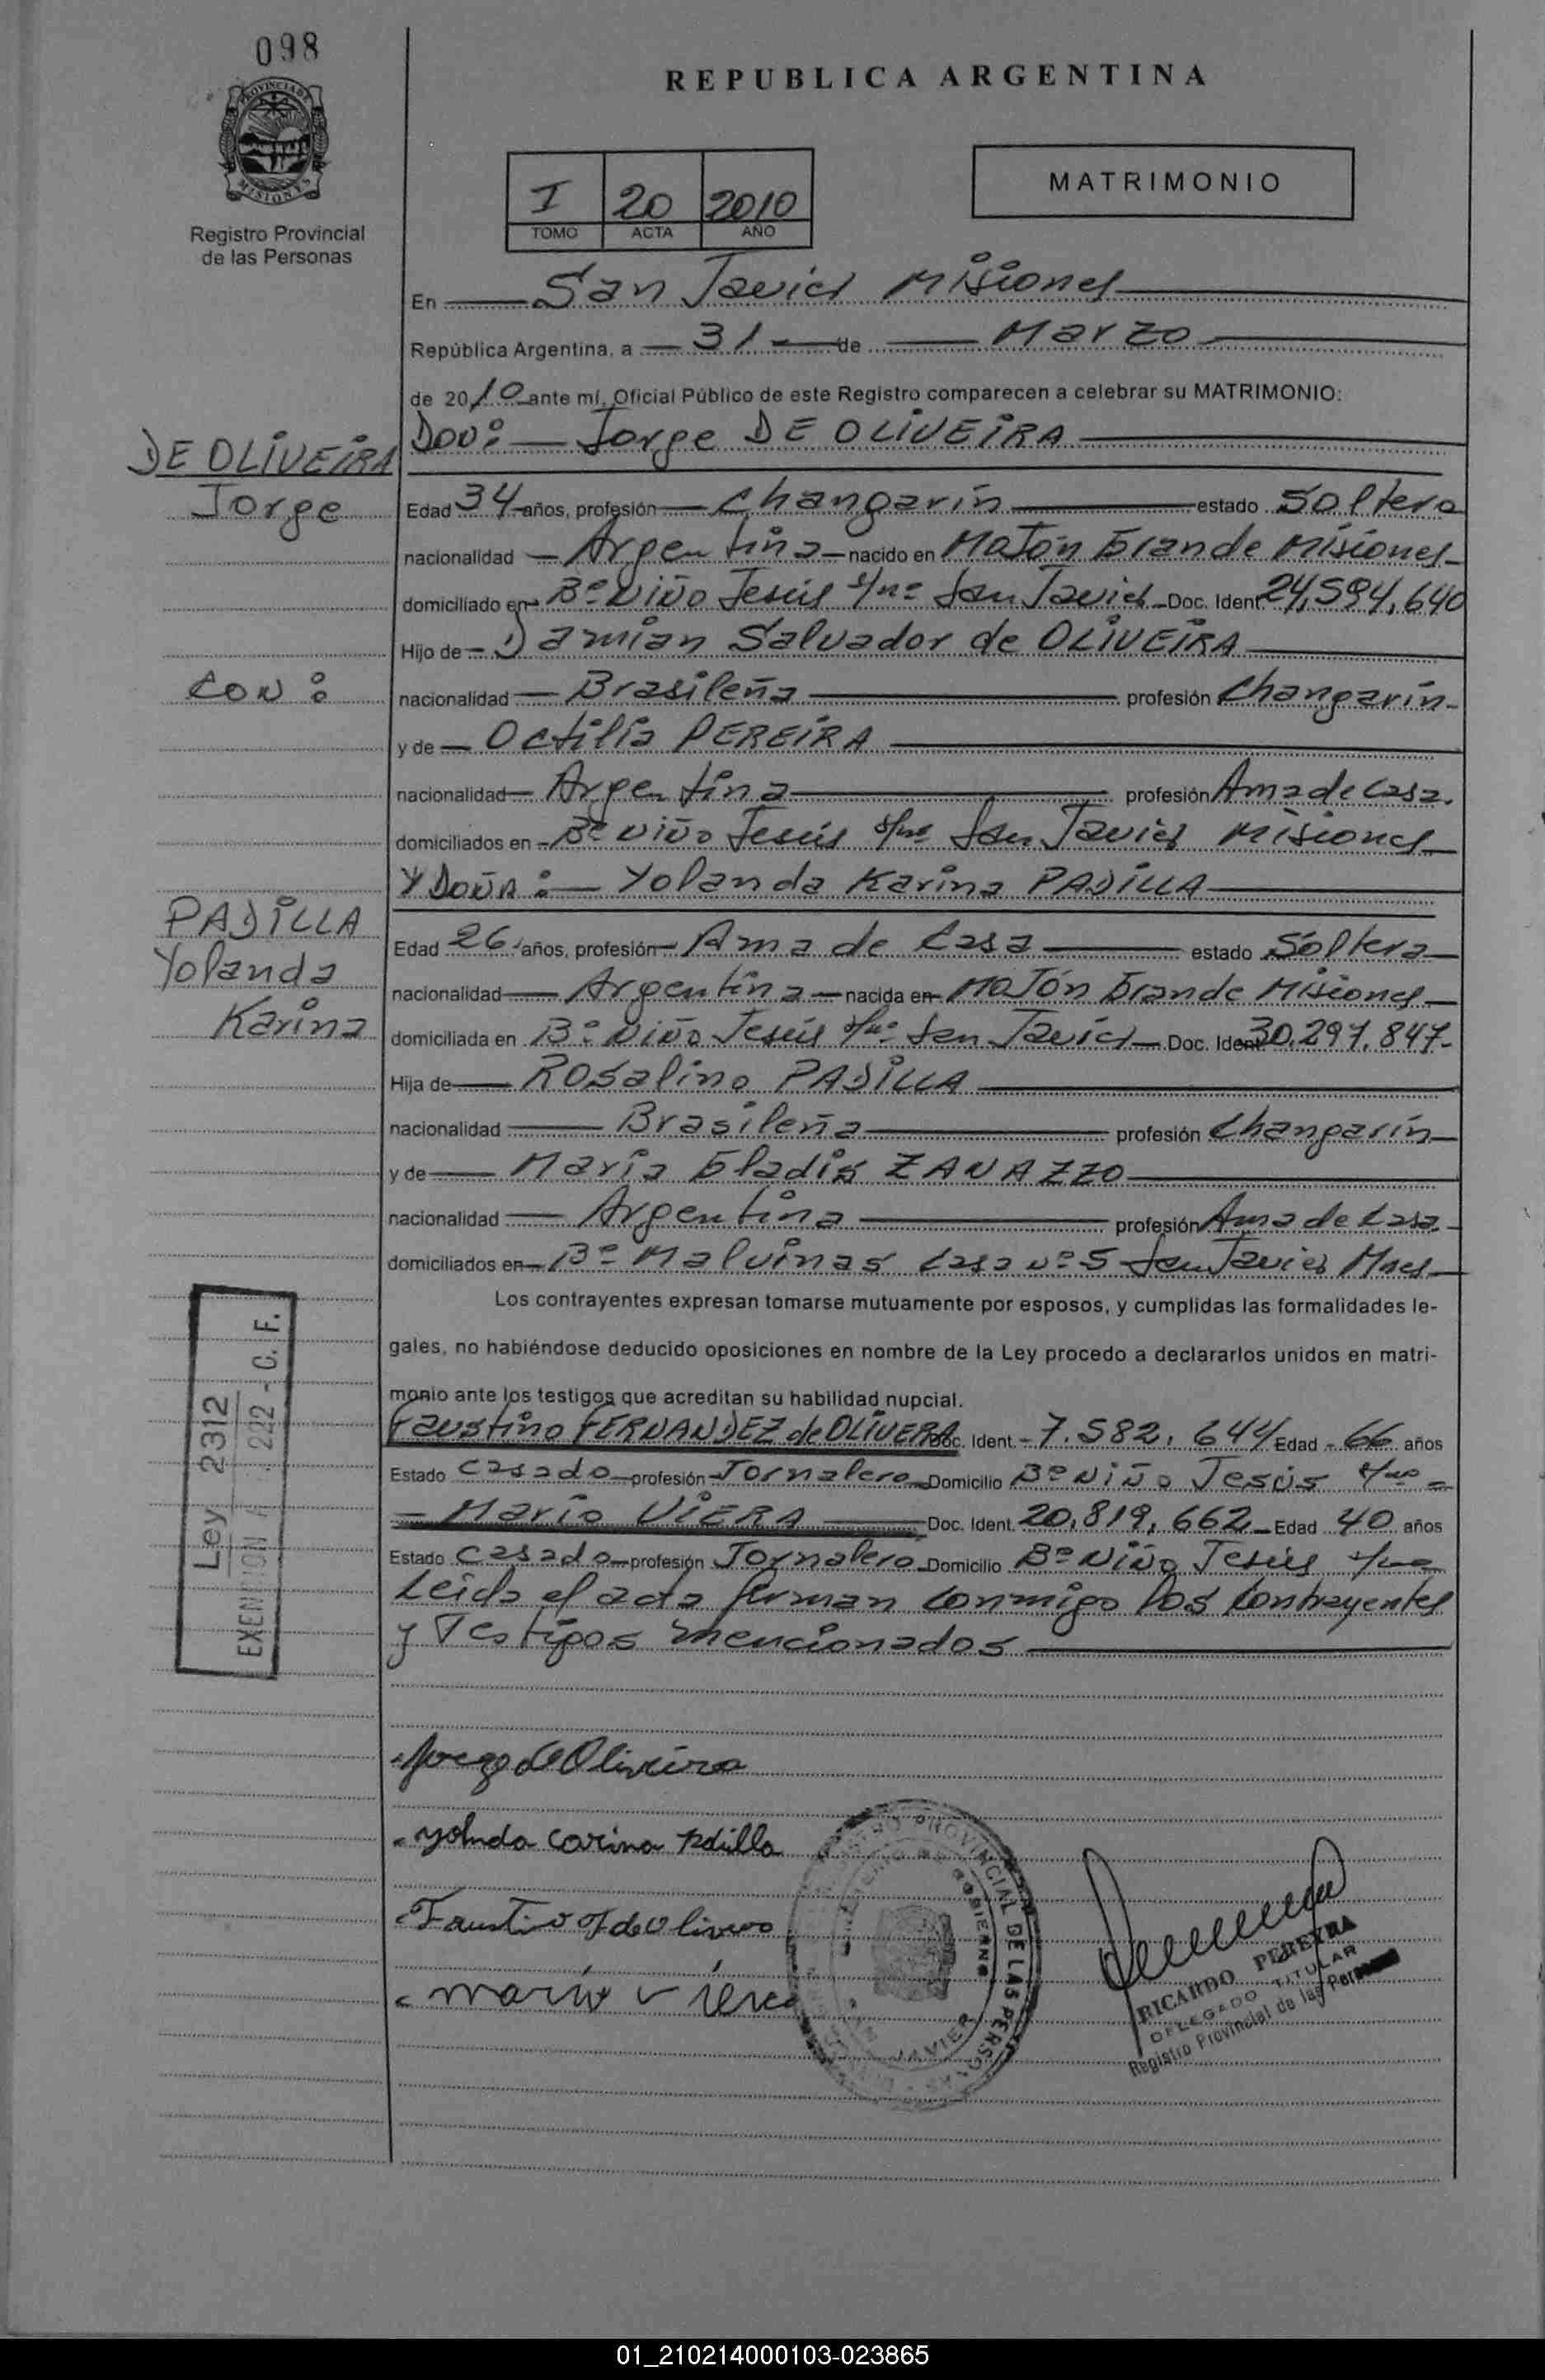 098
PROVINCIA DE
MISIONES
Registro Provincial
de las Personas
REPUBLICA ARGENTINA
I 20 2010
TOMO ACTA AÑO
MATRIMONIO
En San Javier Misiones
República Argentina, a 31 de Marzo
de 2010 ante mí, Oficial Público de este Registro comparecen a celebrar su MATRIMONIO:
DON: Jorge DE OLIVEIRA
DE OLIVEIRA
Jorge
Edad 34 años, profesión Changarín estado Soltero
nacionalidad Argentina nacido en Mojón Grande Misiones
domiciliado en Bº Niño Jesús s/nº San Javier Doc. Ident 24,594,640
Hijo de Damian Salvador de OLIVEIRA
CON:
nacionalidad Brasileña profesión Changarín
y de Octilia PEREIRA
nacionalidad Argentina profesión Ama de Casa.
domiciliados en Bº Niño Jesús s/nº San Javier Misiones
Y DOÑA: Yolanda Karina PADILLA
PADILLA
Yolanda
Karina
Edad 26 años, profesión Ama de Casa estado Soltera
nacionalidad Argentina nacida en Mojón Grande Misiones
domiciliada en Bº Niño Jesús s/nº San Javier Doc. Ident 30.297.847-
Hija de Rosalino PADILLA
nacionalidad Brasileña profesión Changarín
y de María Gladis ZANAZZO
nacionalidad Argentina profesión Ama de Casa.
domiciliados en Bº Malvinas Casa nº 5 San Javier Mnes
Los contrayentes expresan tomarse mutuamente por esposos, y cumplidas las formalidades le-
gales, no habiéndose deducido oposiciones en nombre de la Ley procedo a declararlos unidos en matri-
monio ante los testigos que acreditan su habilidad nupcial.
Faustino FERNANDEZ de OLIVERA Doc. Ident. 7.582.644 Edad 66 años
Estado Casado profesión Jornalero Domicilio Bº Niño Jesús s/nº
Mario VIERA Doc. Ident. 20,819,662 Edad 40 años
Estado Casado profesión Jornalero Domicilio Bº Niño Jesús s/nº
Leída el acta firman conmigo los contrayentes
y Testigos mencionados
Ley 2312
EXENCION A 222 - C. F.
Jorge de Oliveira
yolnda carina padilla
Faustino F de Olivera
mario viera
REGISTRO PROVINCIAL DE LAS PERSONAS
GOBIERNO
JAVIER
RICARDO PEREYRA
DELEGADO TITULAR
Registro Provincial de las Personas
01_210214000103-023865